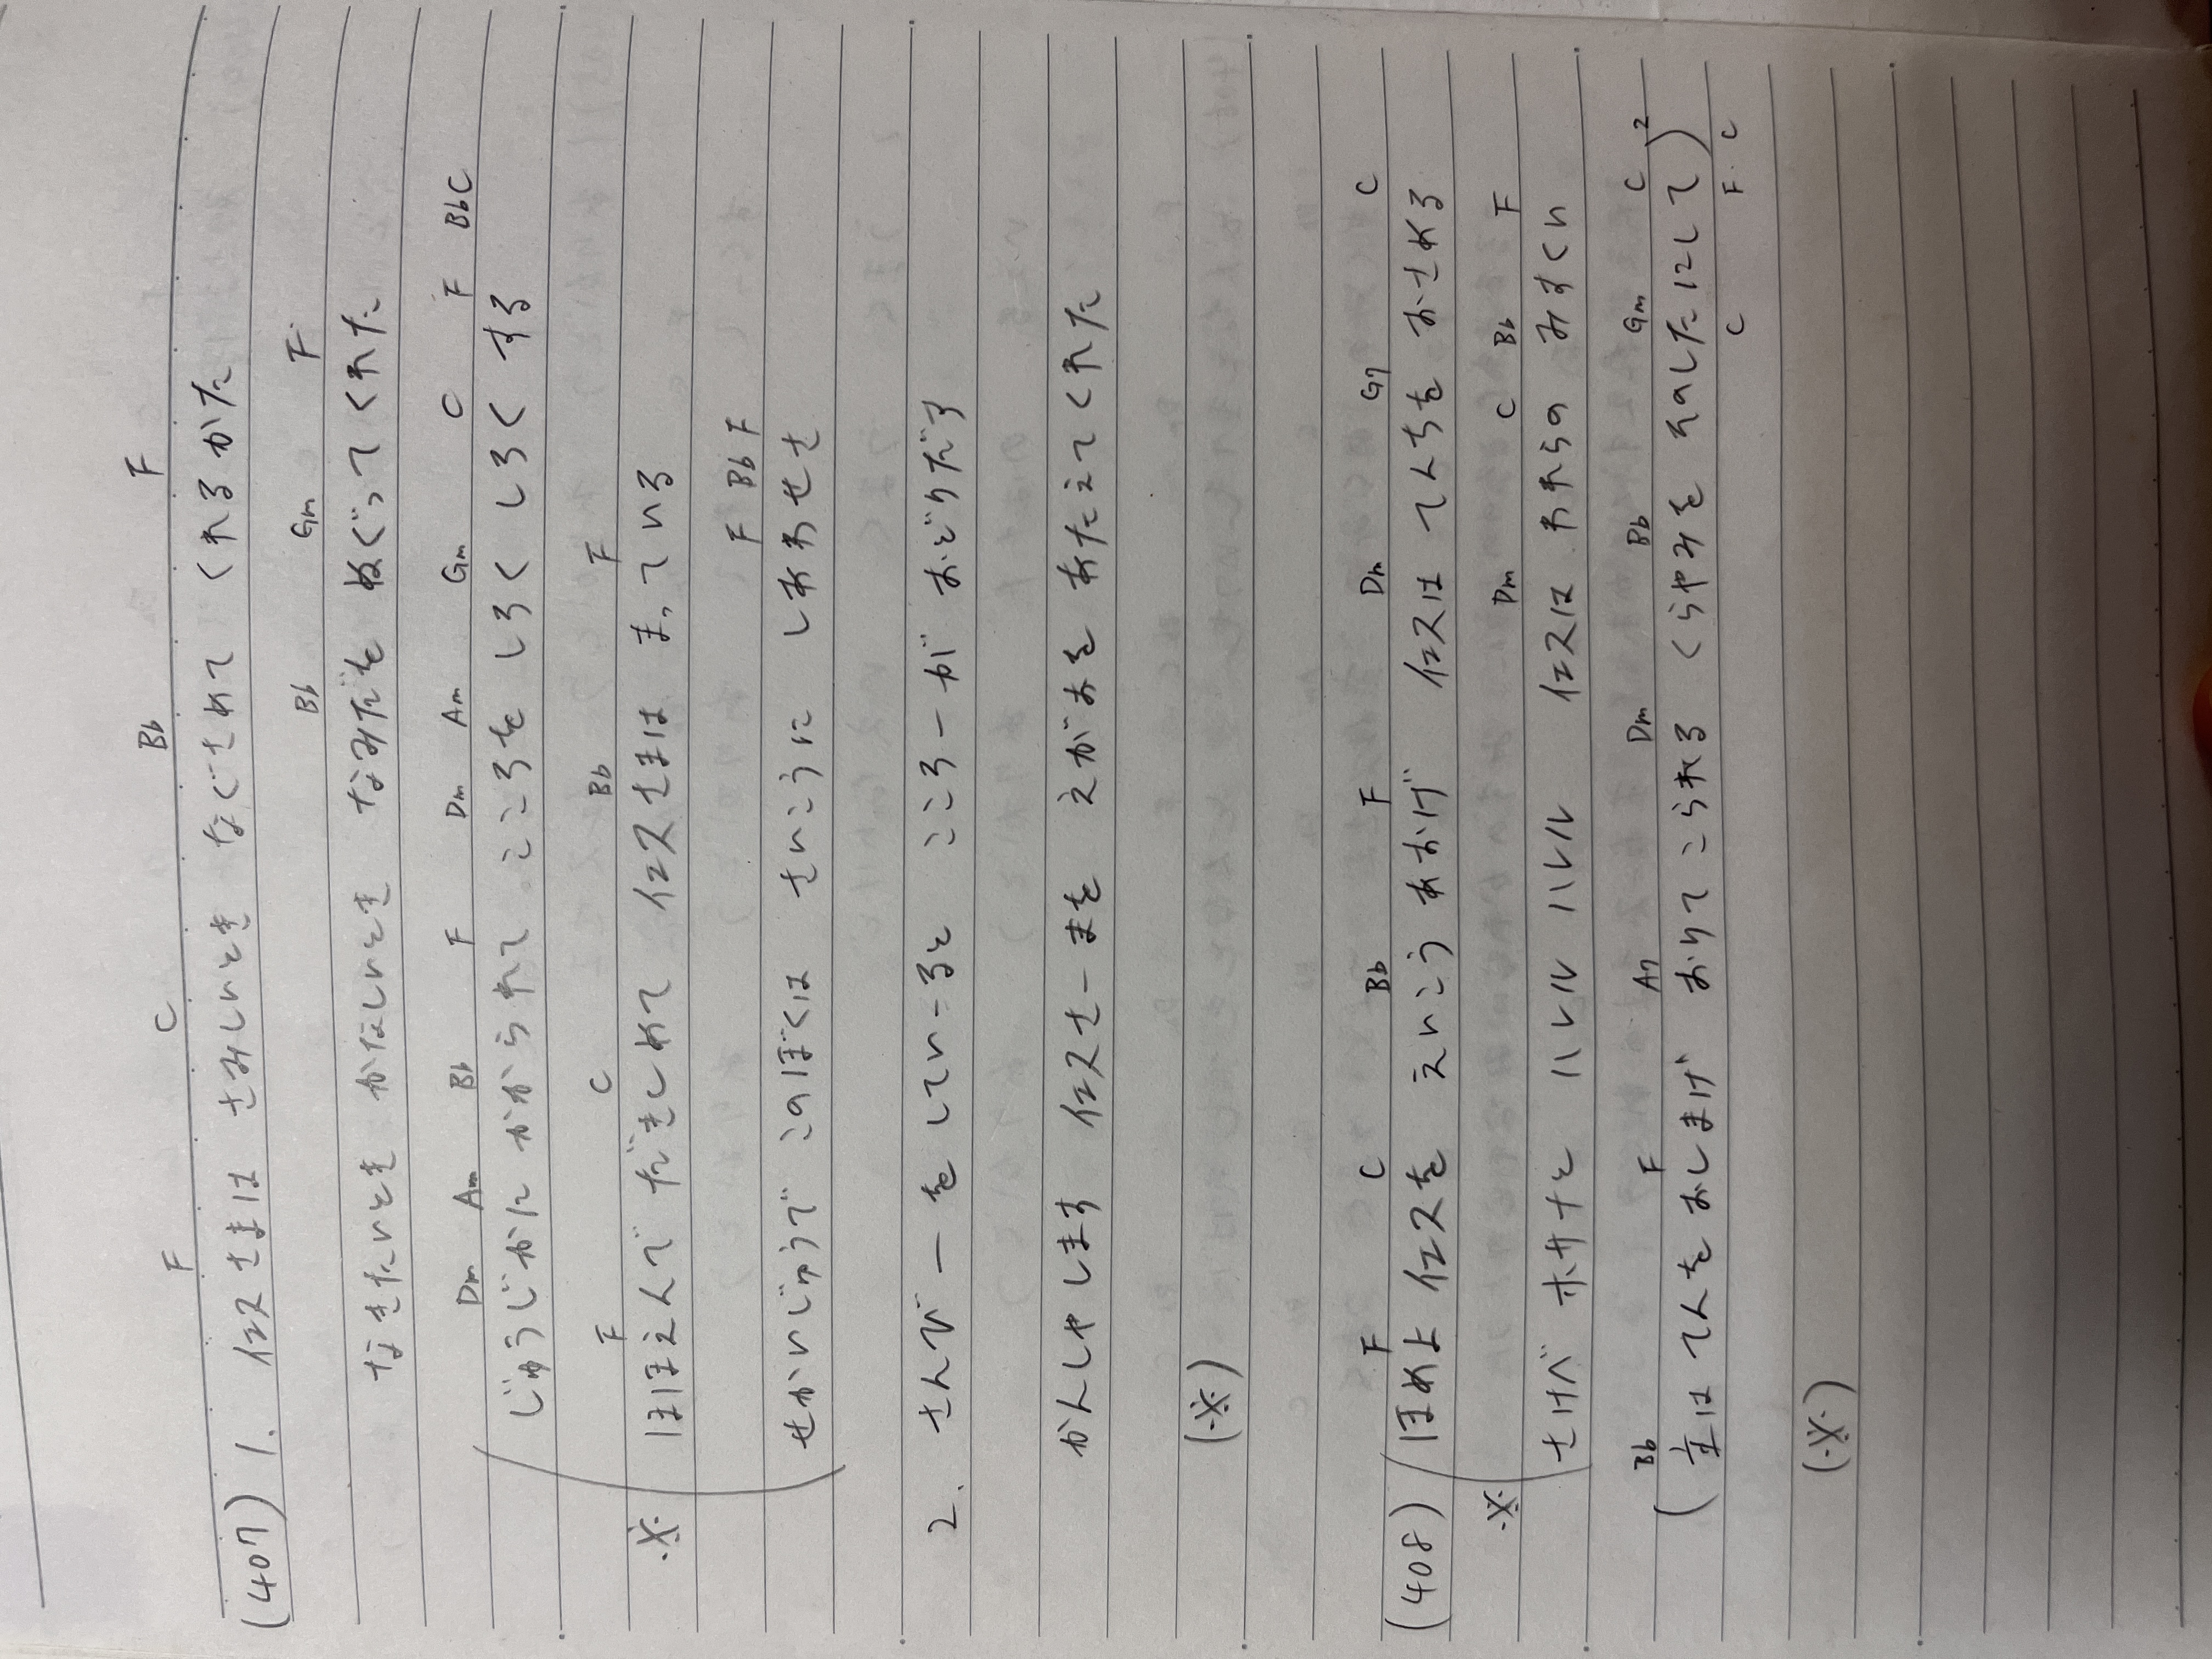 F C Bb F
(407) 1. イエスさまは さみしいとき なぐさめて くれるかた
Bb Gm F
なきたいとき かなしいとき なみだを ぬぐって くれた
Dm Am Bb F Dm Am Gm C F BbC
じゅうじかに かかられて こころを しろく しろく する
F C Bb F
※ ほほえんで だきしめて イエスさまは まっている
F Bb F
せかいじゅうで このぼくは さいこうに しあわせさ
2. さんびーを してい-ると こころーが おどりだす
かんしゃします イエスさーまを えがおを あたえて くれた
(※)
F C Bb F Dm G7 C
(408) ほめよ イエスを えいこう あおげ イエスは てんちを おさめる
Dm C Bb F
※ さけべ ホサナと ハレル ハレル イエスは われらの みすくい
Bb F A7 Dm Bb Gm C 2
(主は てんを おしまげ おりて こられる くらやみを そのした12して)
C F C
(※)